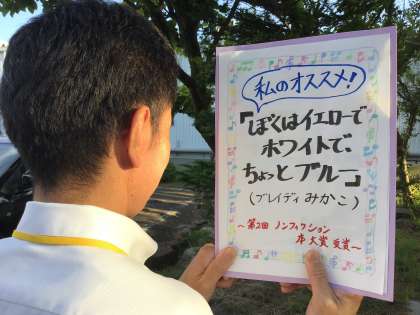 私のオススメ!
「ぼくはイエローで
ホワイトで、
ちょっとブルー」
(ブレイディみかこ)
～第2回 ノンフィクション
本大賞 受賞～